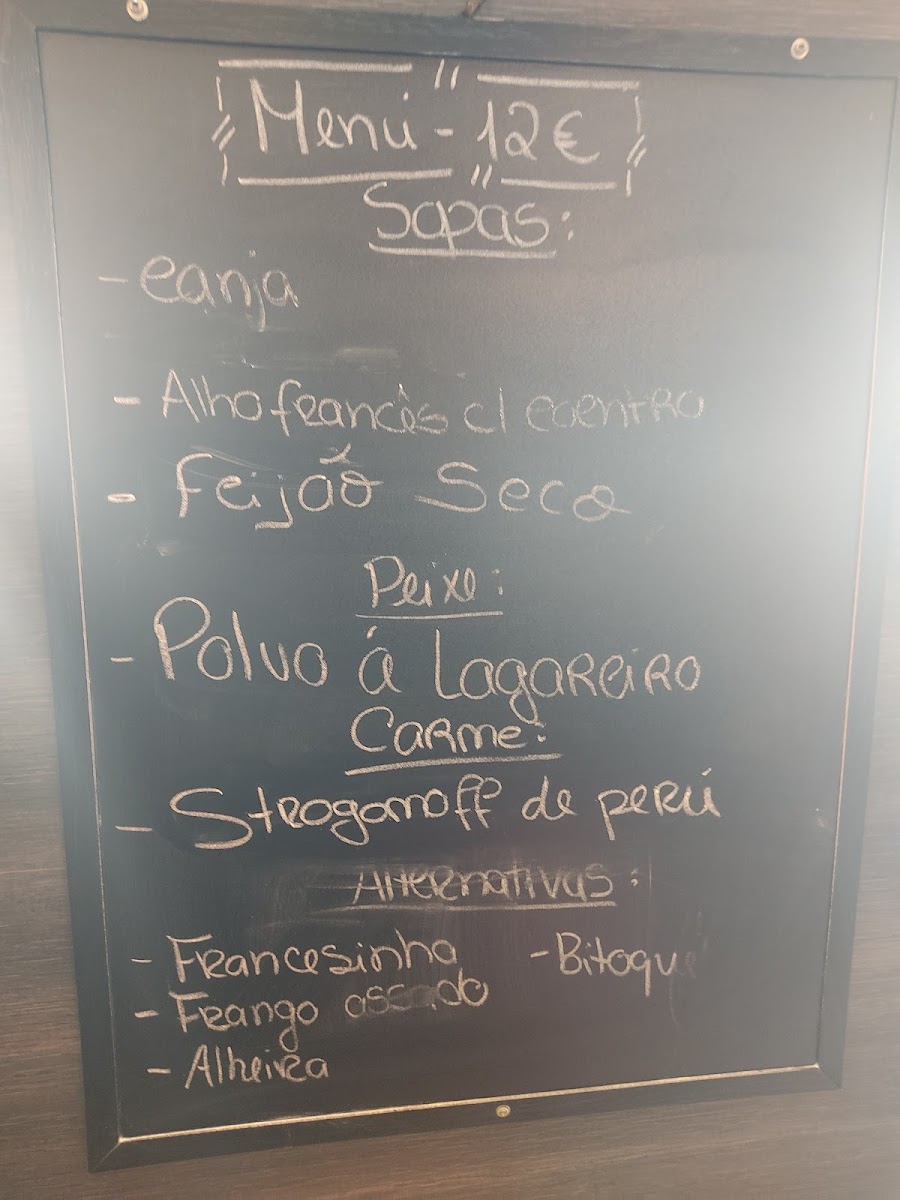 Menú - 12€
Sopas:
- Canja
- Alho francês c/ coentro
- Feijão Seco
Peixe:
- Polvo á Lagareiro
Carne:
- Stroganoff de perú
Alternativas:
- Francesinha - Bitoque
- Frango assado
- Alheira